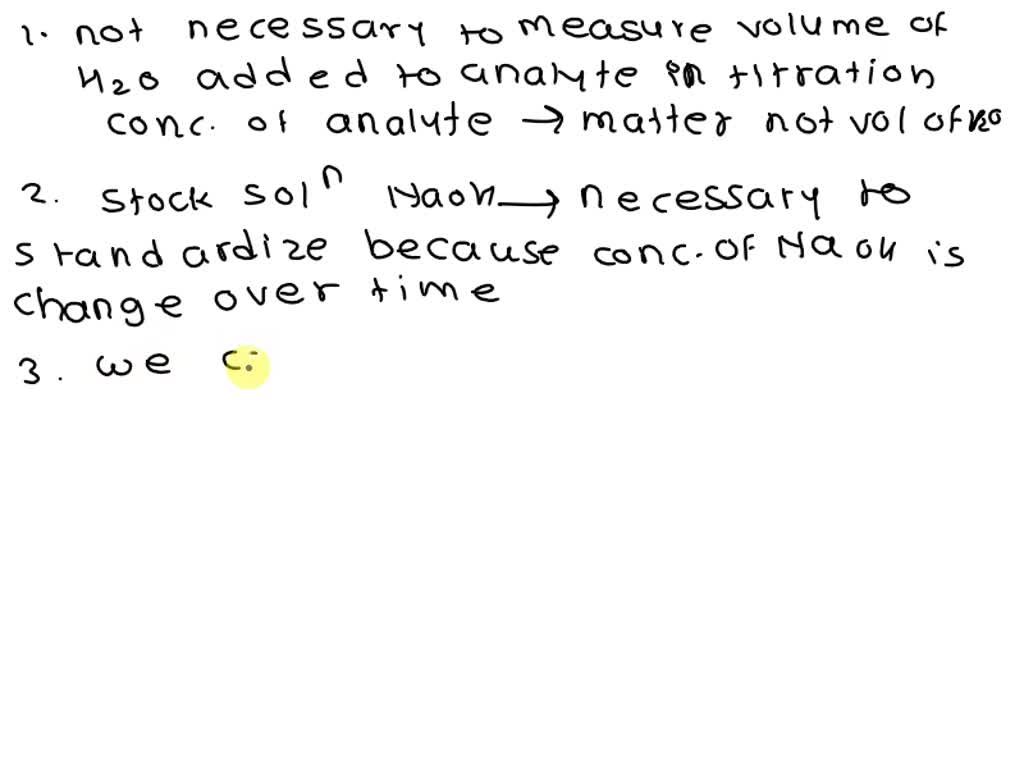 1. not necessary to measure volume of
H2O added to analyte in titration
conc. of analyte → matter not vol of H2O
2. Stock solⁿ NaOH → necessary to
standardize because conc. of NaOH is
change over time
3. we